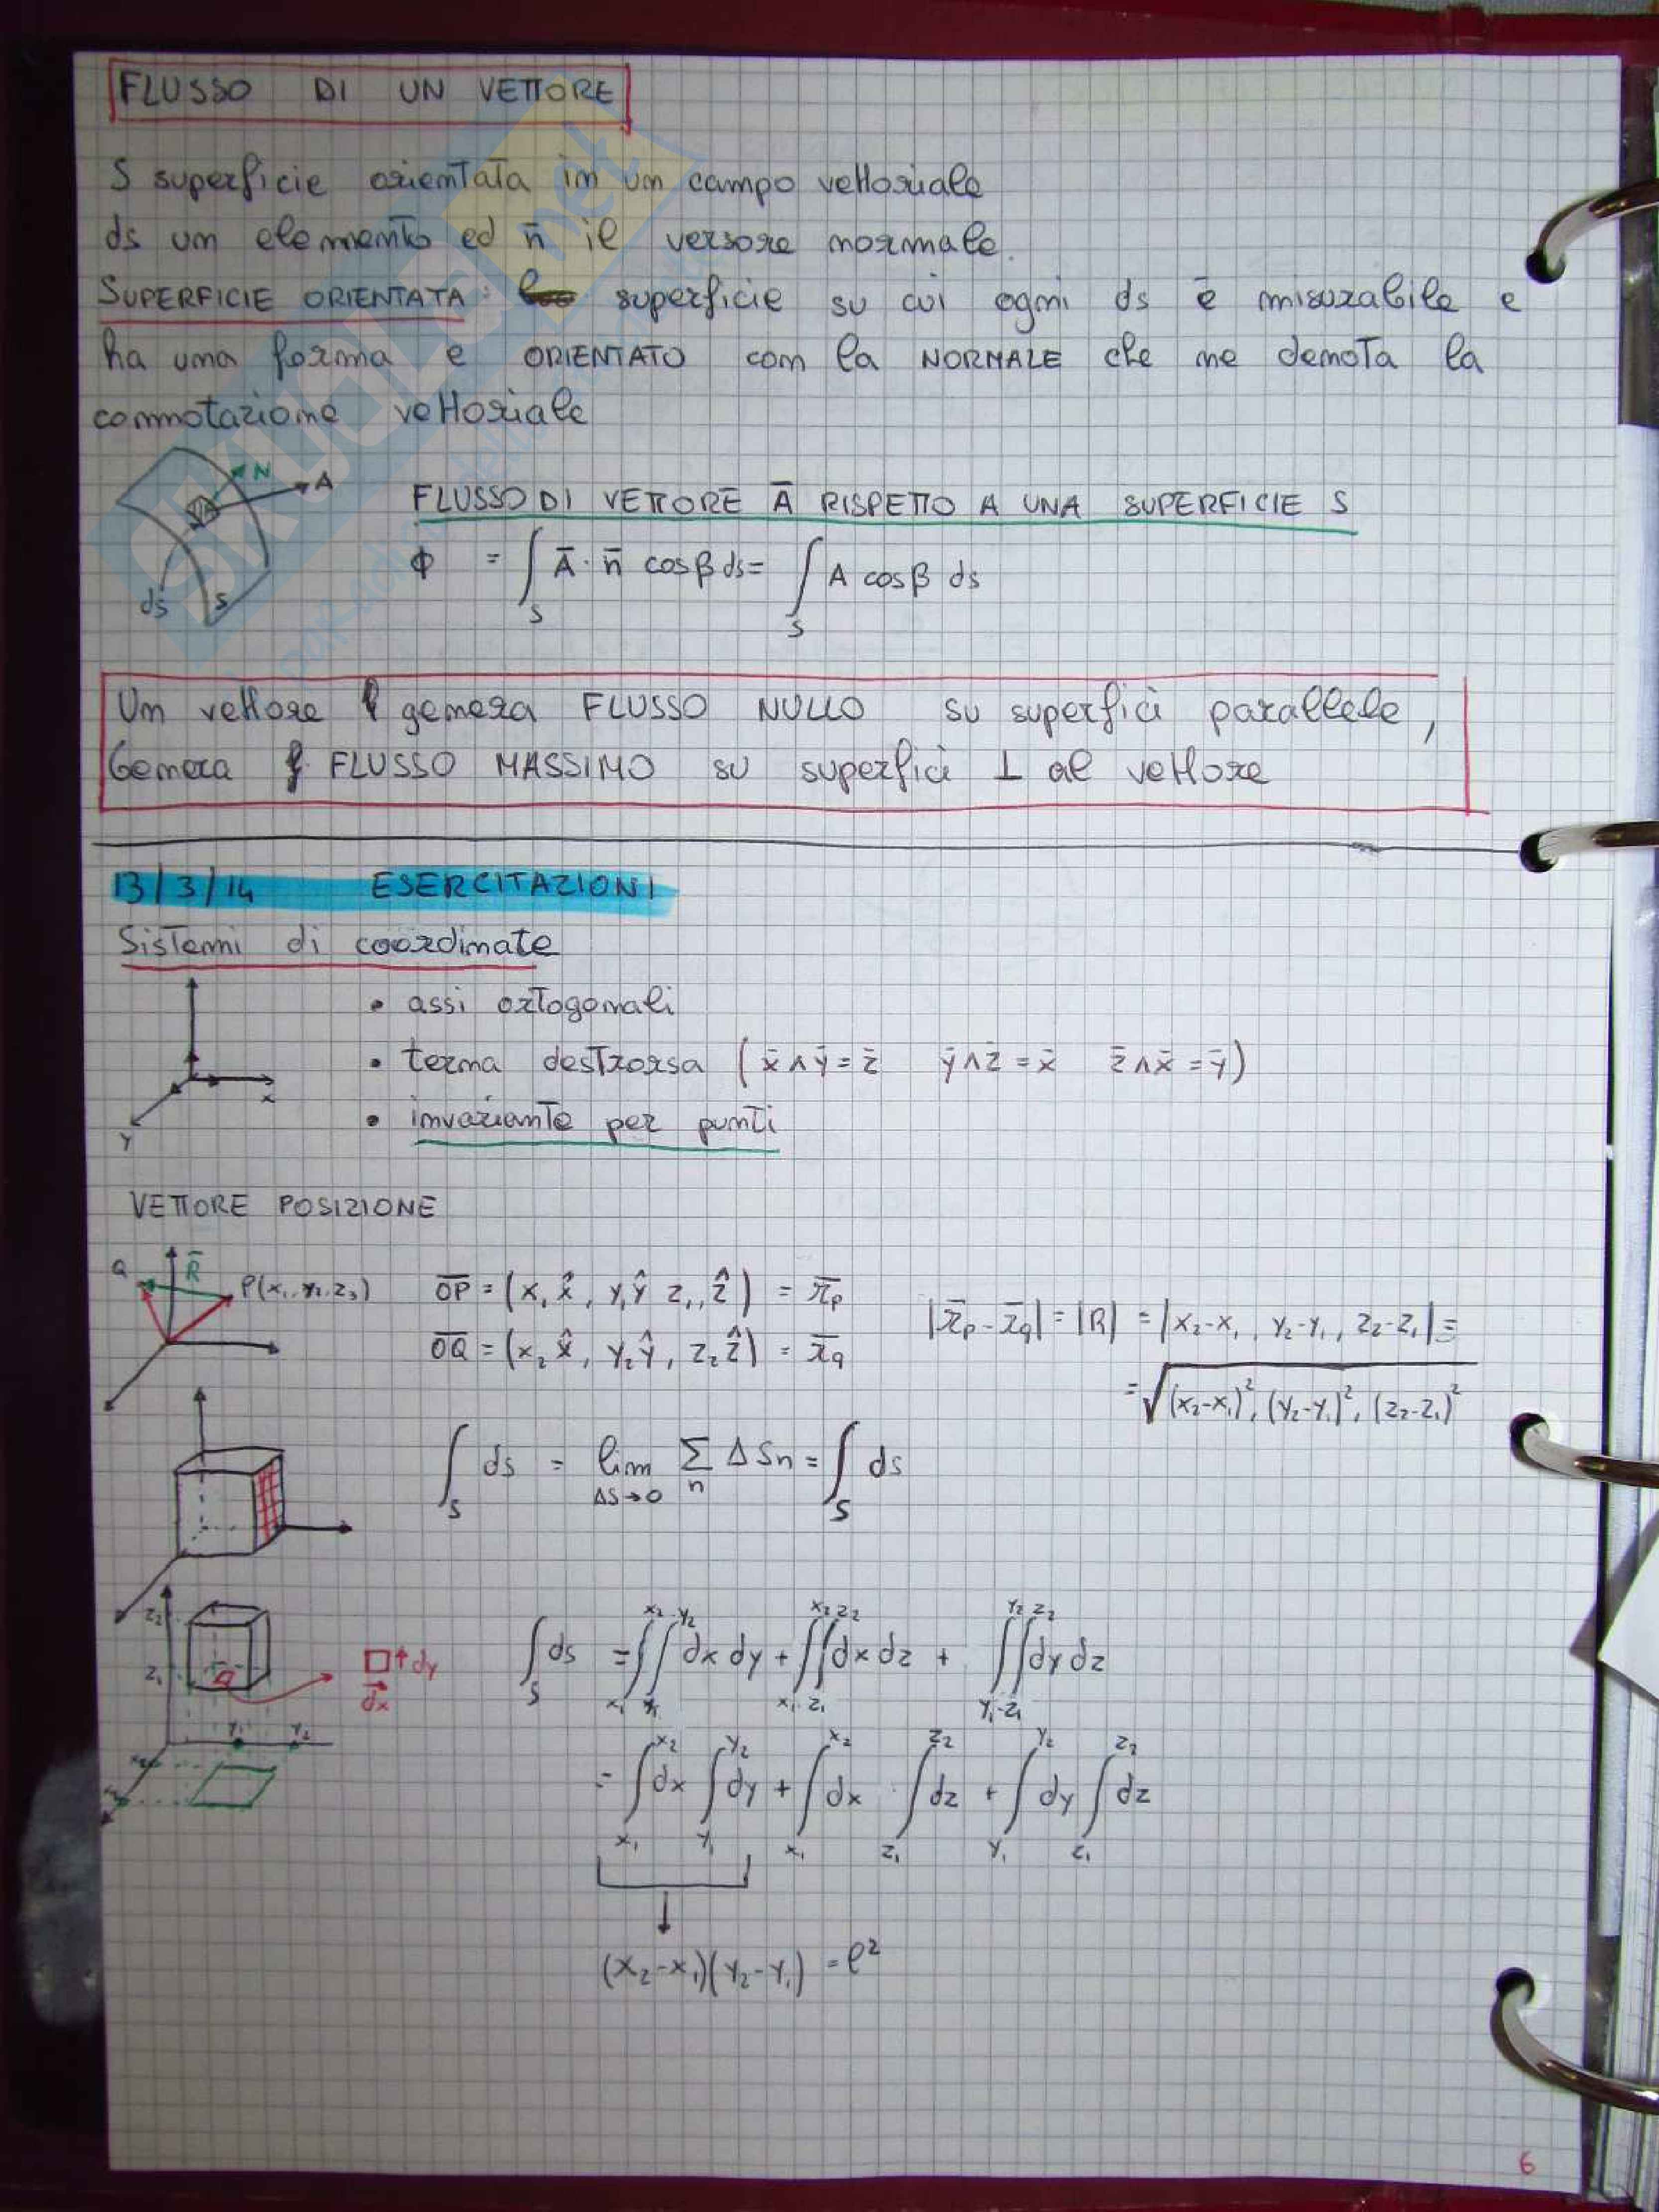 FLUSSO DI UN VETTORE
S superficie orientata in un campo vettoriale
ds un elemento ed n̄ il versore normale.
SUPERFICIE ORIENTATA: superficie su cui ogni ds è misurabile e
ha una forma e ORIENTATO con la NORMALE che ne denota la
connotazione vettoriale
N
A
ds
S
FLUSSO DI VETTORE Ā RISPETTO A UNA SUPERFICIE S
Φ = ∫_S Ā · n̄ cosβ ds = ∫_S A cosβ ds
Un vettore genera FLUSSO NULLO su superfici parallele,
Genera FLUSSO MASSIMO su superfici ⊥ al vettore
13/3/14 ESERCITAZIONI
Sistemi di coordinate
• assi ortogonali
• terna destrorsa (x̄∧ȳ=z̄ ȳ∧z̄=x̄ z̄∧x̄=ȳ)
• invariante per punti
x
Y
VETTORE POSIZIONE
Q R̄
OP = (x₁x̂, y₁ŷ z₁,ẑ) = r̄p
OQ = (x₂x̂, y₂ŷ, z₂ẑ) = r̄q
|r̄p - r̄q| = |R| = |x₂-x₁, y₂-y₁, z₂-z₁| =
= √(x₂-x₁)², (y₂-y₁)², (z₂-z₁)²
∫_S ds = lim_{ΔS→0} Σ_n ΔSn = ∫_S ds
z₂
z₁
dy
dx
y₁ y₂
∫_S ds = ∫_{x₁}^{x₂}∫_{y₁}^{y₂} dx dy + ∫_{x₁}^{x₂}∫_{z₁}^{z₂} dx dz + ∫_{y₁}^{y₂}∫_{z₁}^{z₂} dy dz
= ∫_{x₁}^{x₂} dx ∫_{y₁}^{y₂} dy + ∫_{x₁}^{x₂} dx · ∫_{z₁}^{z₂} dz + ∫_{y₁}^{y₂} dy ∫_{z₁}^{z₂} dz
(x₂-x₁)(y₂-y₁) = ℓ²
6